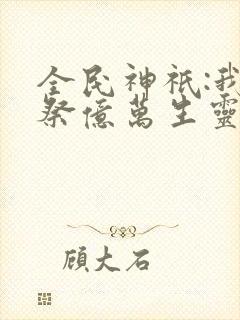 全民神祇:我
祭億萬生靈
顾大石